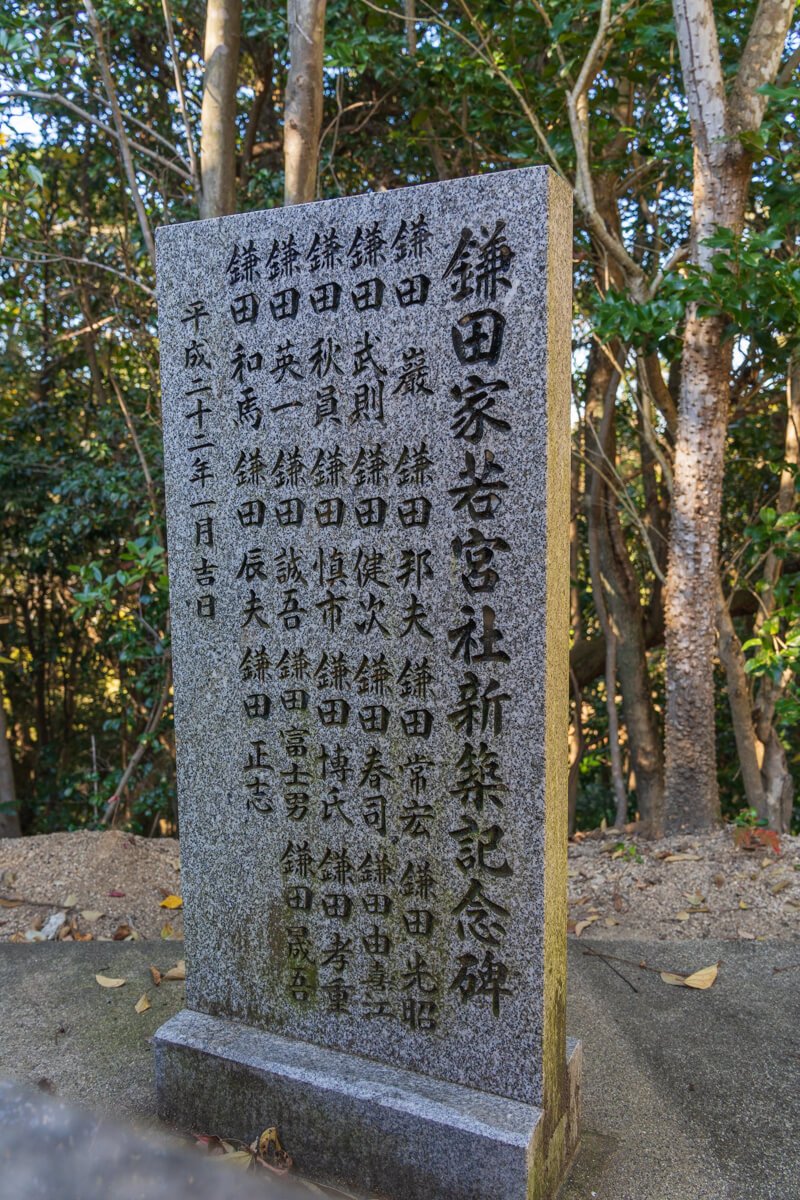 鎌田家若宮社新築記念碑
鎌田 巖 鎌田 邦夫 鎌田 常宏 鎌田 光昭
鎌田 武則 鎌田 健次 鎌田 春司 鎌田 由喜江
鎌田 秋員 鎌田 慎市 鎌田 博氏 鎌田 孝重
鎌田 英一 鎌田 誠吾 鎌田 富士男 鎌田 晟吾
鎌田 和馬 鎌田 辰夫 鎌田 正志
平成二十二年一月吉日